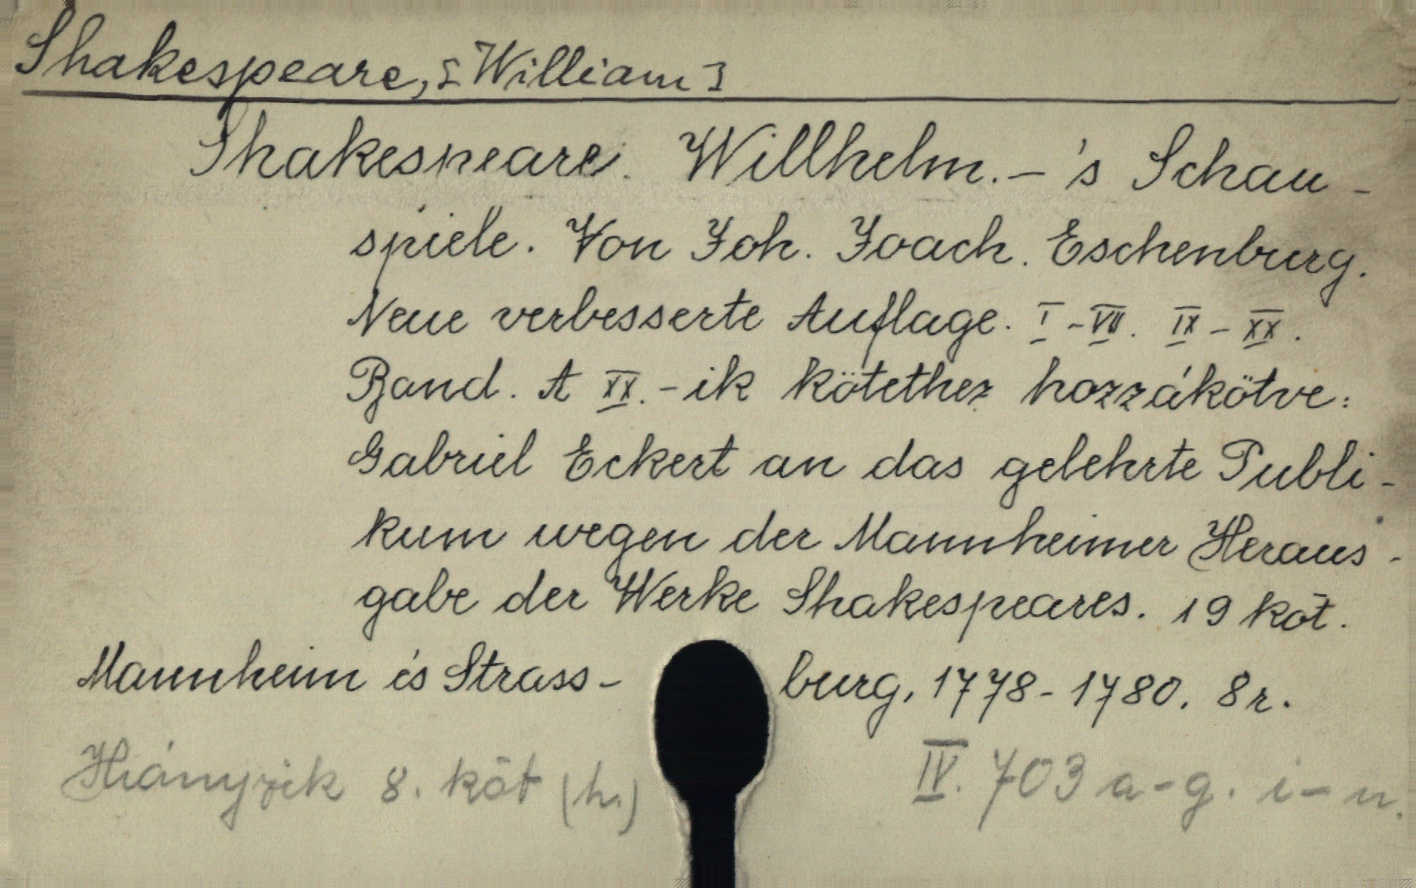 Shakespeare, [William]
Shakespeare. Willhelm. – 's Schau-
spiele. Von Joh. Joach. Eschenburg.
Neue verbesserte Auflage. I-VII. IX-XX.
Band. A XX.-ik kötethez hozzákötve:
Gabriel Eckert an das gelehrte Publi-
kum wegen der Mannheimer Heraus-
gabe der Werke Shakespeares. 19 köt.
Mannheim és Strass- burg, 1778-1780. 8r.
Hiányzik 8. köt (h.) IV. 703 a-g. i-u.